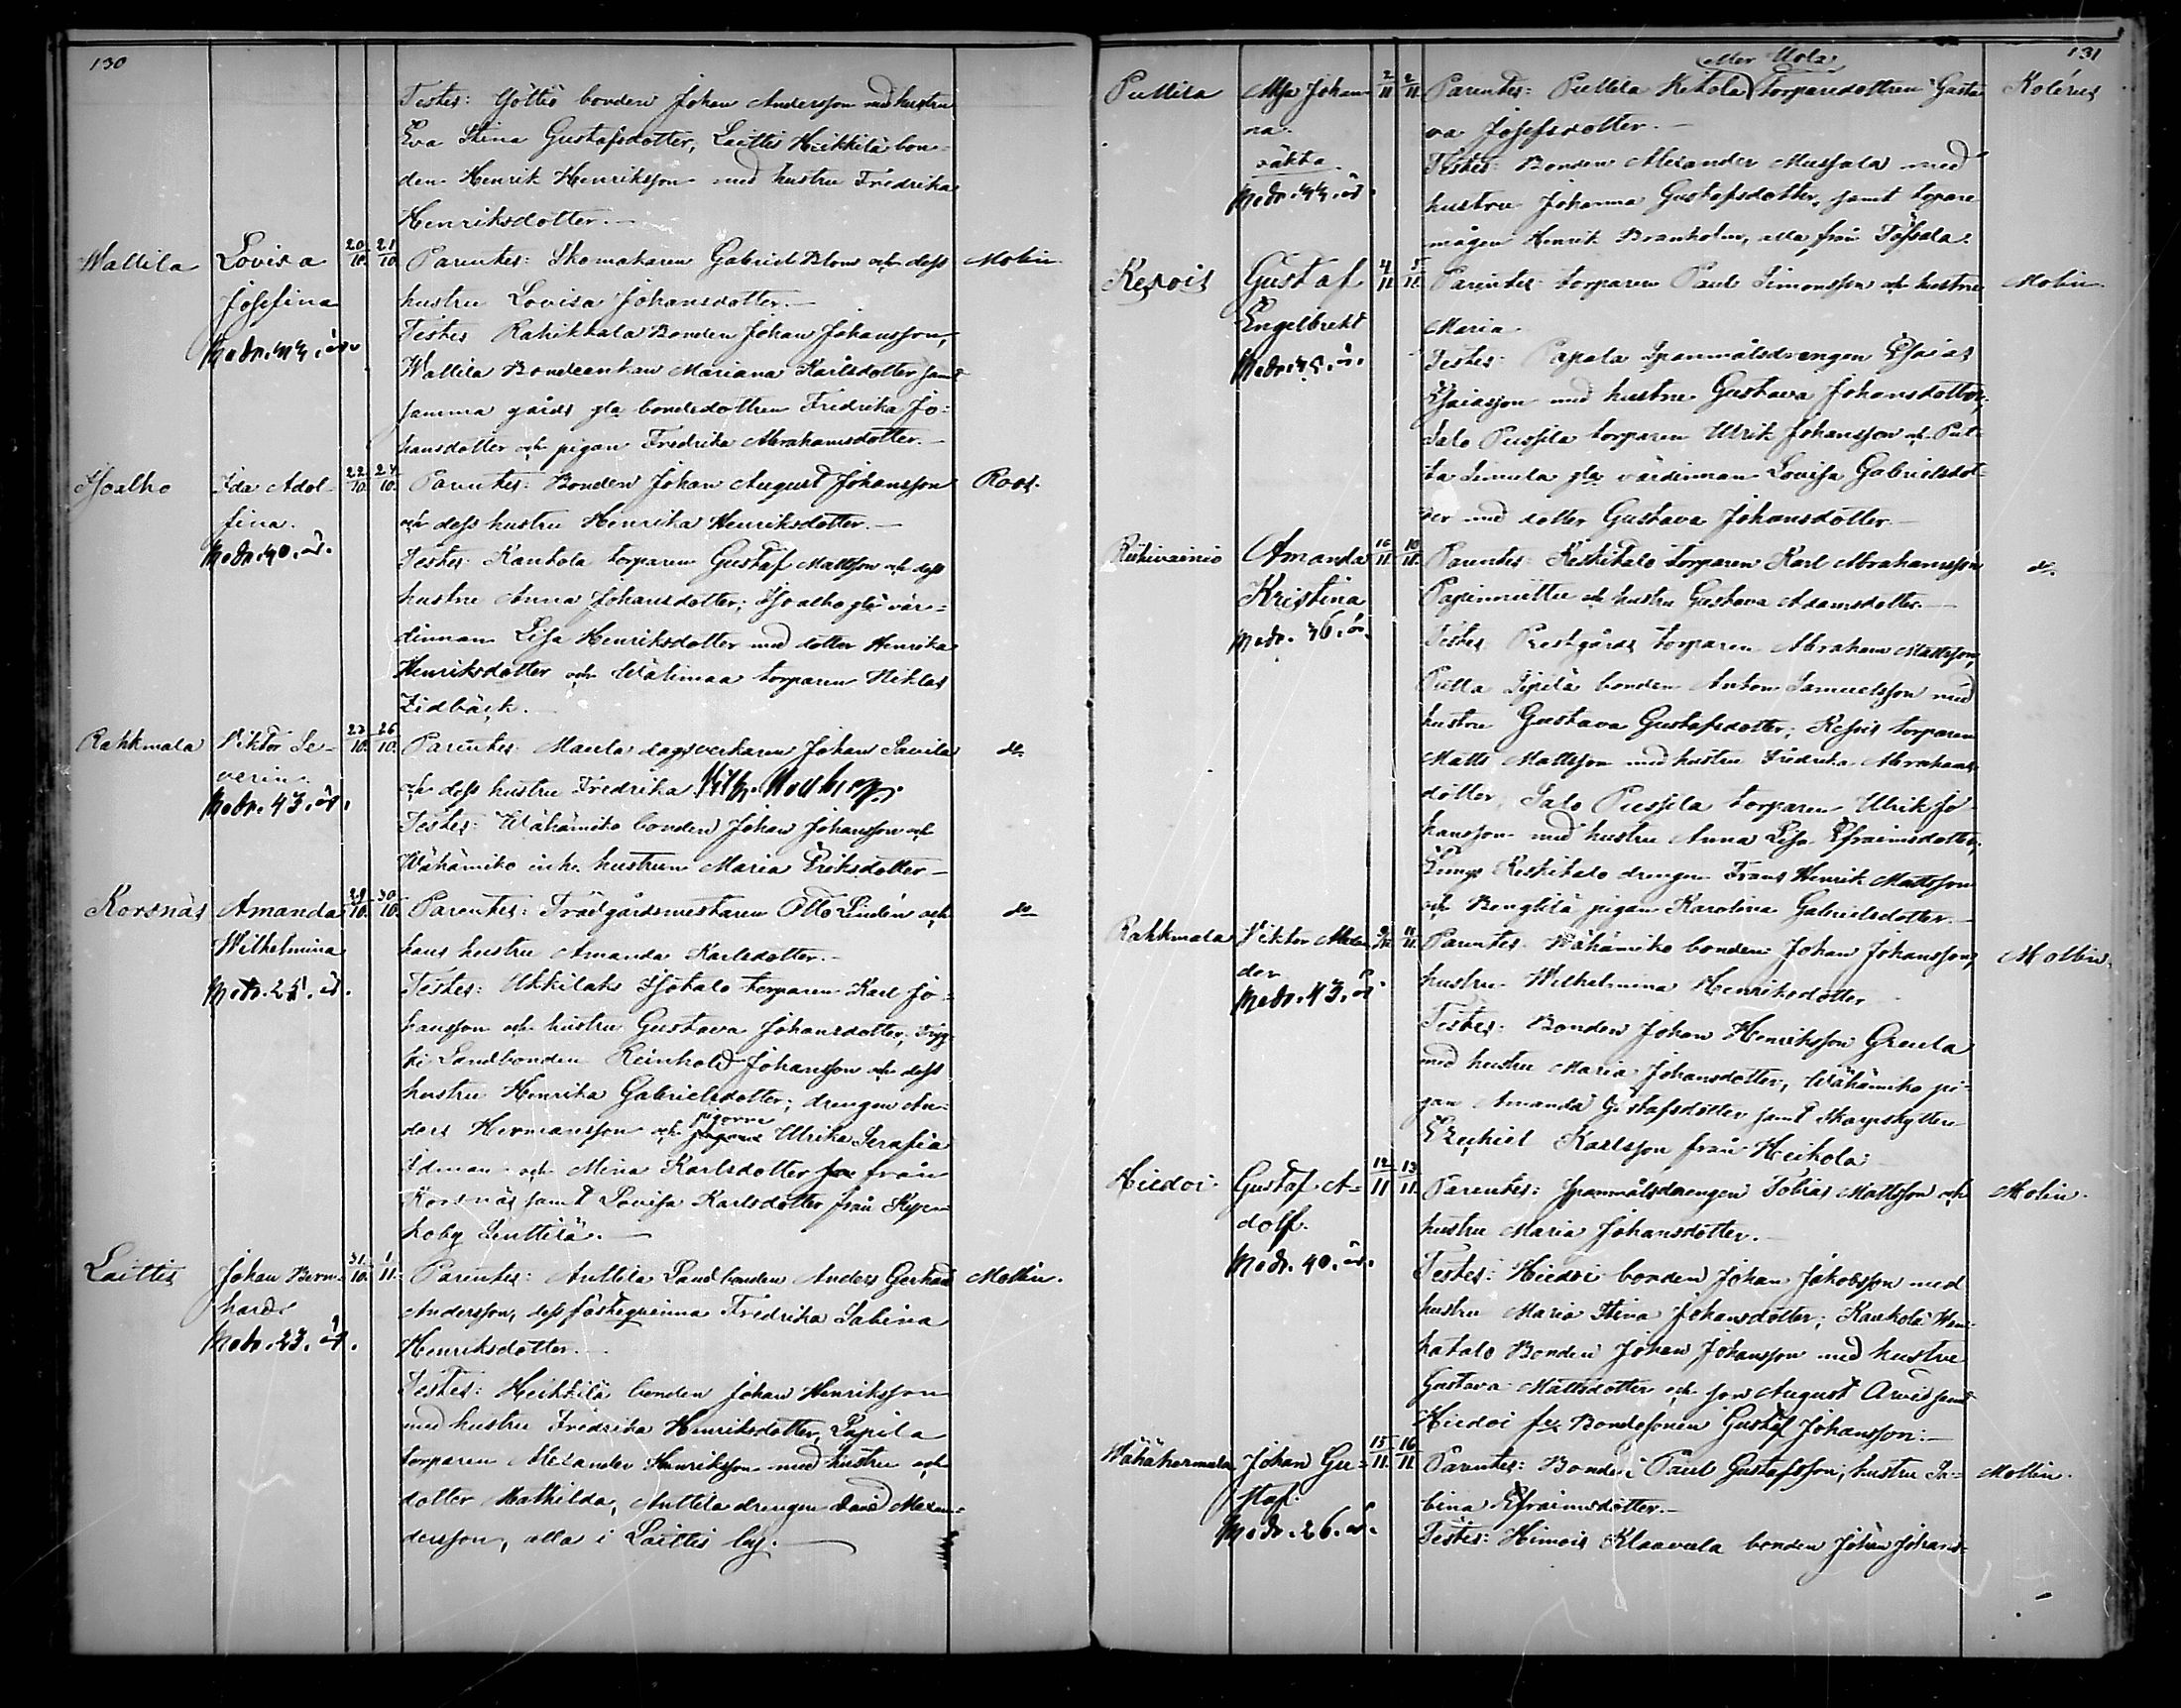 130
Testes: Göttis bonden Johan Andersson med hustru
Eva Stina Gustafsdotter, Laittis Heikkilä bon-
den Henrik Henriksson med hustru Fredrika
Henriksdotter.
Wallila Lovisa 20/10. 21/10. Parentes: Skomakaren Gabriel Blom och dess Molin
Josefina hustru Lovisa Johansdotter.
Testes Bonden Johan Johansson,
Modr. 44. år.
Wallila Bondeenkan Mariana Karlsdotter samt
samma gårds gla bondedottren Fredrika Jo-
hansdotter och pigan Fredrika Abrahamsdotter.
Isoalho Ida Adol- 22/10. 24/10. Parentes: Bonden Johan August Johansson Roos.
fina. och dess hustru Henrika Henriksdotter.
Modr. 40. år. Testes: Kankola torparen Gustaf Mattsson och dess
hustru Anna Johansdotter; Isoalho gla vär-
dinnan Lisa Henriksdotter med dotter Henrika
Henriksdotter och Wälimaa torparen Niklas
Lidbäck.
Rahkmala Viktor Se- 23/10. 26/10. Parentes: Maula dagsverkaren Johan Savila do
verin. och dess hustru Fredrika
Modr. 43. år.
Testes: Wähämiko bonden Johan Johansson och
Wähämiko inh. hustrun Maria Eriksdotter
Korsnäs Amanda 29/10. 30/10. Parentes: Trädgårdsmästaren Otto Lindén och do
Wilhelmina hans hustru Amanda Karlsdotter.
Modr. 25. år. Testes: Ukkilaks Isotalo torparen Karl Jo-
hansson och hustru Gustava Johansdotter,
Landbonden Reinhold Johansson och dess
hustru Henrika Gabrielsdotter; drengen An-
pigorne
ders Hermansson och Ulrika Serafia
Idman och Mina Karlsdotter från
Korsnäs samt Lovisa Karlsdotter från
koby Senttilä.
Laittis Johan Bern- 31/10. 1/11. Parentes: Anttila Landbonden Anders Gerhard Mollin.
hard. Andersson, dess fästeqvinna Fredrika Sabina
Modr. 23. år. Henriksdotter.
Testes: Heikkilä bonden Johan Henriksson
med hustru Fredrika Henriksdotter, Lapila
torparen Alexander Henriksson med hustru och
dotter Mathilda, Anttila drengen David Alexan-
dersson, alla i Laittis by.
131
eller Mola
Puttila Maja Johan- 2/11 2/11. Parentes: Puttila Ketola torparedottren Gusta- Kolérus
na. va Josefsdotter.
oäkta Testes: Bonden Alexander Mussala med
Modr. 44. år. hustru Johanna Gustafsdotter, samt torpare
mågen Henrik Branholm, alla från Töfsala.
Kesois Gustaf 4/11 5/11. Parentes: torparen Paul Simonsson och hustru Molin
Engelbrekt Maria.
Modr. år. Testes: Papala Spanmålsdrengen Esaias
Esaiasson med hustru Gustava Johansdotter,
Salo Pussila torparen Ulrik Johansson och Put-
ta Simula gla värdinnan Lovisa Gabrielsdot-
ter med dotter Gustava Johansdotter.
Amanda 10/11 10/11. Parentes: Keskitalo torparen Karl Abrahamsson do
Kristina och hustru Gustava Adamsdotter.
Modr. 36. år. Testes, Prestgårds torparen Abraham Mattsson,
Putta Sipilä bonden Anton Samuelsson med
hustru Gustava Gustafsdotter; Kesois torparen
Matts Mattsson med hustru Fredrika Abrahams-
dotter, Salo Pussila torparen Ulrik Jo-
hansson med hustru Anna Lisa Efraimsdotter,
Keskitalo drengen Frans Henrik Mattsson
och Bengtilä pigan Karolina Gabrielsdotter.
Rahkmala Viktor Alexan- 9/11. 11/11. Parentes: Wähämiko bonden Johan Johansson, Mollin.
der hustru Wilhelmina Henriksdotter
Modr. 43. år. Testes: Bonden Johan Henriksson Greula
med hustru Maria Johansdotter, Wähämiko pi-
gan Amanda Gustafsdotter samt Skarpskytten
Ezechiel Karlsson från Heikola
Hiedoi Gustaf A- 12/11 13/11. Parentes: Spanmålsdrengen Tobias Mattsson och Molin.
dolf. hustru Maria Johansdotter.
Modr. 40. år. Testes: Hiedoi bonden Johan Jakobsson med
hustru Maria Stina Johansdotter; Kankola Wan-
hatalo Bonden Johan Johansson med hustru
Gustava Mattsdotter och son August Arvid samt
Hiedoi Bondesonen Gustaf Johansson.
Wähähermala Johan Gu- 15/11. 16/11. Parentes: Bonden Paul Gustafsson, hustru Sa- Mollin.
staf. bina Efraimsdotter.
Modr. 26. år. Testes: Himois Klaavula bonden Johan Johans-